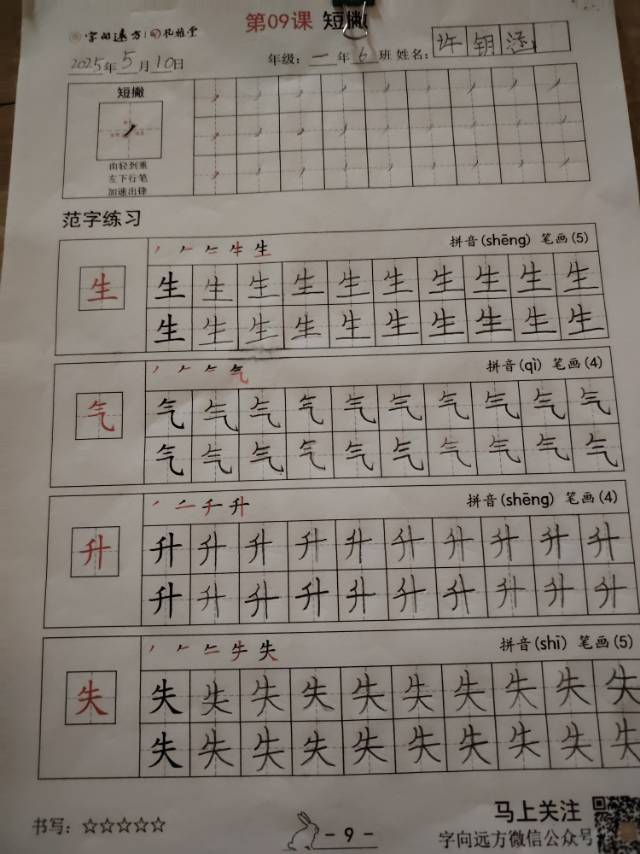 字向远方 第09课 短撇
2025年5月10日 年级：一年6班 姓名：许钥涵
短撇
由轻到重
左下行笔
加速出锋
范字练习
生 拼音(shēng) 笔画(5)
生 生 生 生 生 生 生 生 生 生 生
生 生 生 生 生 生 生 生 生 生
气 拼音(qì) 笔画(4)
气 气 气 气 气 气 气 气 气 气 气
气 气 气 气 气 气 气 气 气 气
千 升 拼音(shēng) 笔画(4)
升 升 升 升 升 升 升 升 升 升 升
升 升 升 升 升 升 升 升 升 升
失 拼音(shī) 笔画(5)
失 失 失 失 失 失 失 失 失 失 失
失 失 失 失 失 失 失 失 失 失
书写：☆☆☆☆☆ - 9 - 马上关注
字向远方微信公众号